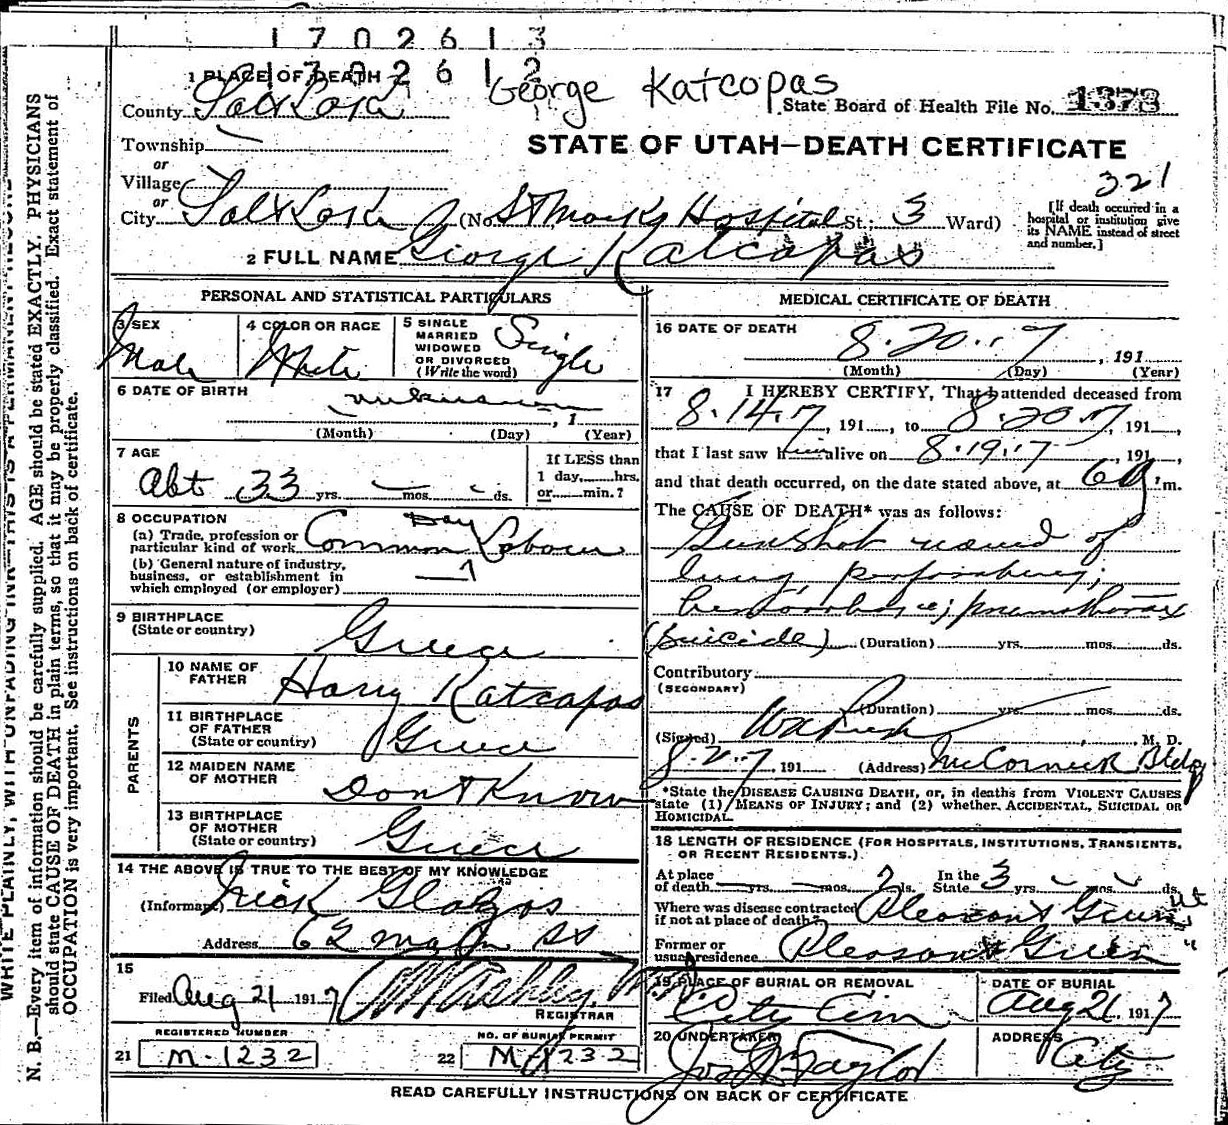 1702613
1702612
George Katcopas
1 PLACE OF DEATH
County Salt Lake
State Board of Health File No. 1373
STATE OF UTAH—DEATH CERTIFICATE
Township
or
Village
or
321
City Salt Lake (No. St Marks Hospital St.; 3 Ward)
[If death occurred in a hospital or institution give its NAME instead of street and number.]
2 FULL NAME George Katcopas
PERSONAL AND STATISTICAL PARTICULARS
3 SEX
Male
4 COLOR OR RACE
White
5 SINGLE
MARRIED
WIDOWED
OR DIVORCED
(Write the word)
Single
6 DATE OF BIRTH
unknown
, 1
(Month) (Day) (Year)
7 AGE
Abt 33 yrs. mos. ds.
If LESS than
1 day, hrs.
or min.?
8 OCCUPATION
(a) Trade, profession or
particular kind of work Common Day Labour
(b) General nature of industry,
business, or establishment in
which employed (or employer)
9 BIRTHPLACE
(State or country)
Greece
PARENTS
10 NAME OF
FATHER
Harry Katcapas
11 BIRTHPLACE
OF FATHER
(State or country)
Greece
12 MAIDEN NAME
OF MOTHER
Dont Know
13 BIRTHPLACE
OF MOTHER
(State or country)
Greece
14 THE ABOVE IS TRUE TO THE BEST OF MY KNOWLEDGE
(Informant) Nick
Address
15
Filed Aug 21 1917
REGISTRAR
REGISTERED NUMBER
21 M-1232
NO. OF BURIAL PERMIT
22 M 1232
MEDICAL CERTIFICATE OF DEATH
16 DATE OF DEATH
8-20-17
, 191
(Month) (Day) (Year)
17 I HEREBY CERTIFY, That I attended deceased from
8-14-17, 191, to 8-20-17, 191,
that I last saw him alive on 8-19-17, 191,
and that death occurred, on the date stated above, at 6 a.m.
The CAUSE OF DEATH* was as follows:
Gunshot wound of
lung, perforating;
hemorrhage; pneumothorax
(Suicide) (Duration) yrs. mos. ds.
Contributory
(SECONDARY)
(Duration) yrs. mos. ds.
(Signed) , M. D.
, 191 (Address) McCornick Bldg
*State the DISEASE CAUSING DEATH, or, in deaths from VIOLENT CAUSES
state (1) MEANS OF INJURY; and (2) whether ACCIDENTAL, SUICIDAL OR
HOMICIDAL.
18 LENGTH OF RESIDENCE (FOR HOSPITALS, INSTITUTIONS, TRANSIENTS,
OR RECENT RESIDENTS.)
At place
of death yrs. mos. 7 ds.
In the
State 3 yrs. mos. ds.
Where was disease contracted
if not at place of death? Pleasant Green Ut
Former or
usual residence Pleasant Green "
19 PLACE OF BURIAL OR REMOVAL
City Cem
DATE OF BURIAL
Aug 21, 1917
20 UNDERTAKER
Taylor
ADDRESS
City
READ CAREFULLY INSTRUCTIONS ON BACK OF CERTIFICATE
WRITE PLAINLY, WITH UNFADING INK—THIS IS A PERMANENT RECORD
N. B.—Every item of information should be carefully supplied. AGE should be stated EXACTLY. PHYSICIANS
should state CAUSE OF DEATH in plain terms, so that it may be properly classified. Exact statement of
OCCUPATION is very important. See instructions on back of certificate.